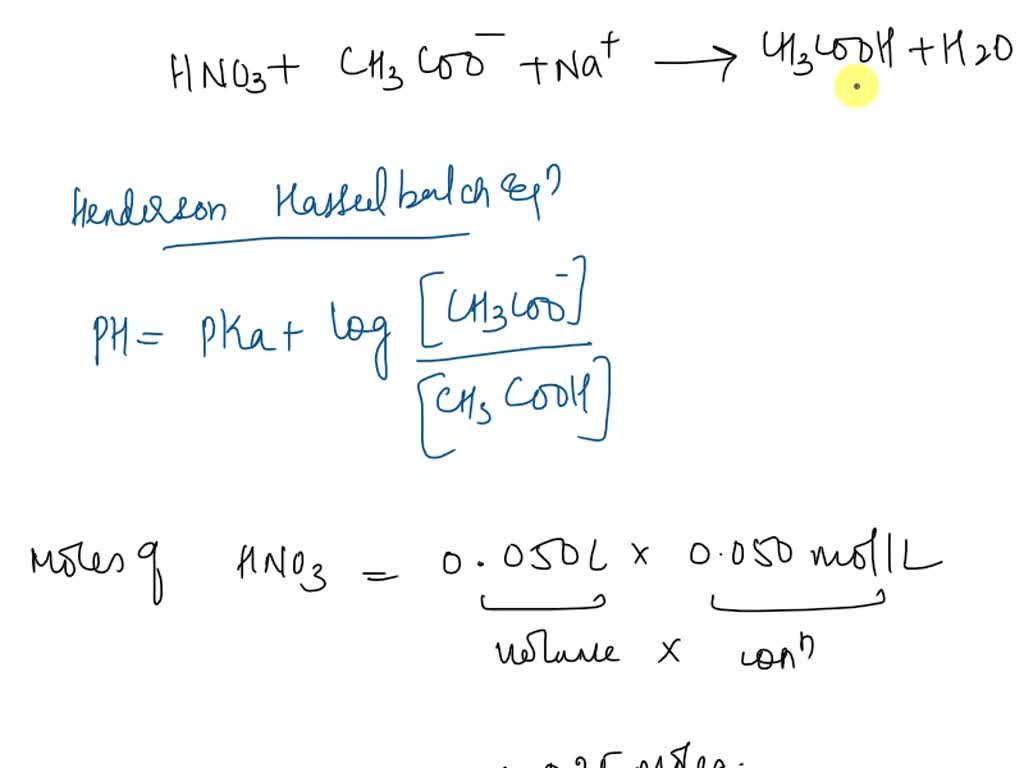 HNO3 + CH3COO⁻ + Na⁺ → CH3COOH + H2O
Henderson Hasselbalch Eqⁿ
PH = PKa + log [CH3COO⁻] / [CH3COOH]
Moles of HNO3 = 0.050L × 0.050 mol/L
volume × conⁿ
moles.